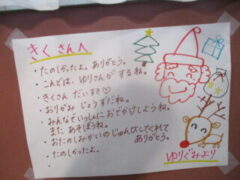 きくさんへ
・たのしかったよ。ありがとう。
・こんどは、ゆりさんが するね。
・きくさん だいすき♡
・おりがみ じょうずだね。
・みんなでいっしょに おでかけしようね。
また、あそぼうね。
・おたのしみかいの じゅんびしてくれて
ありがとう。
・たのしかったよ。
ゆりぐみより